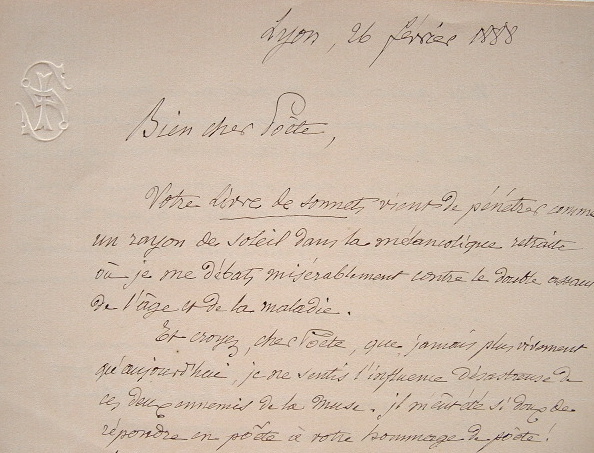 Lyon, 26 février 1888
Bien cher Pôëte,
Votre Livre de sonnets vient de pénétrer comme
un rayon de soleil dans la mélancolique retraite
où je me débats misérablement contre le double assaut
de l'âge et de la maladie.
Et croyez, cher Poëte, que jamais plus vivement
qu'aujourd'hui, je ne sentis l'influence désastreuse de
ces deux ennemis de la Muse. Il m'eût été si doux de
répondre en pôëte à votre hommage de pôëte!